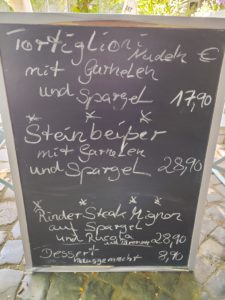 Tortiglioni
Nudeln €
mit Garnelen
und Spargel 17,90
Steinbeißer
mit Garnelen
und Spargel 28,90
Rinder Steak Mignon
auf Spargel
und Rucola 28,90
Dessert 8,90
hausgemacht